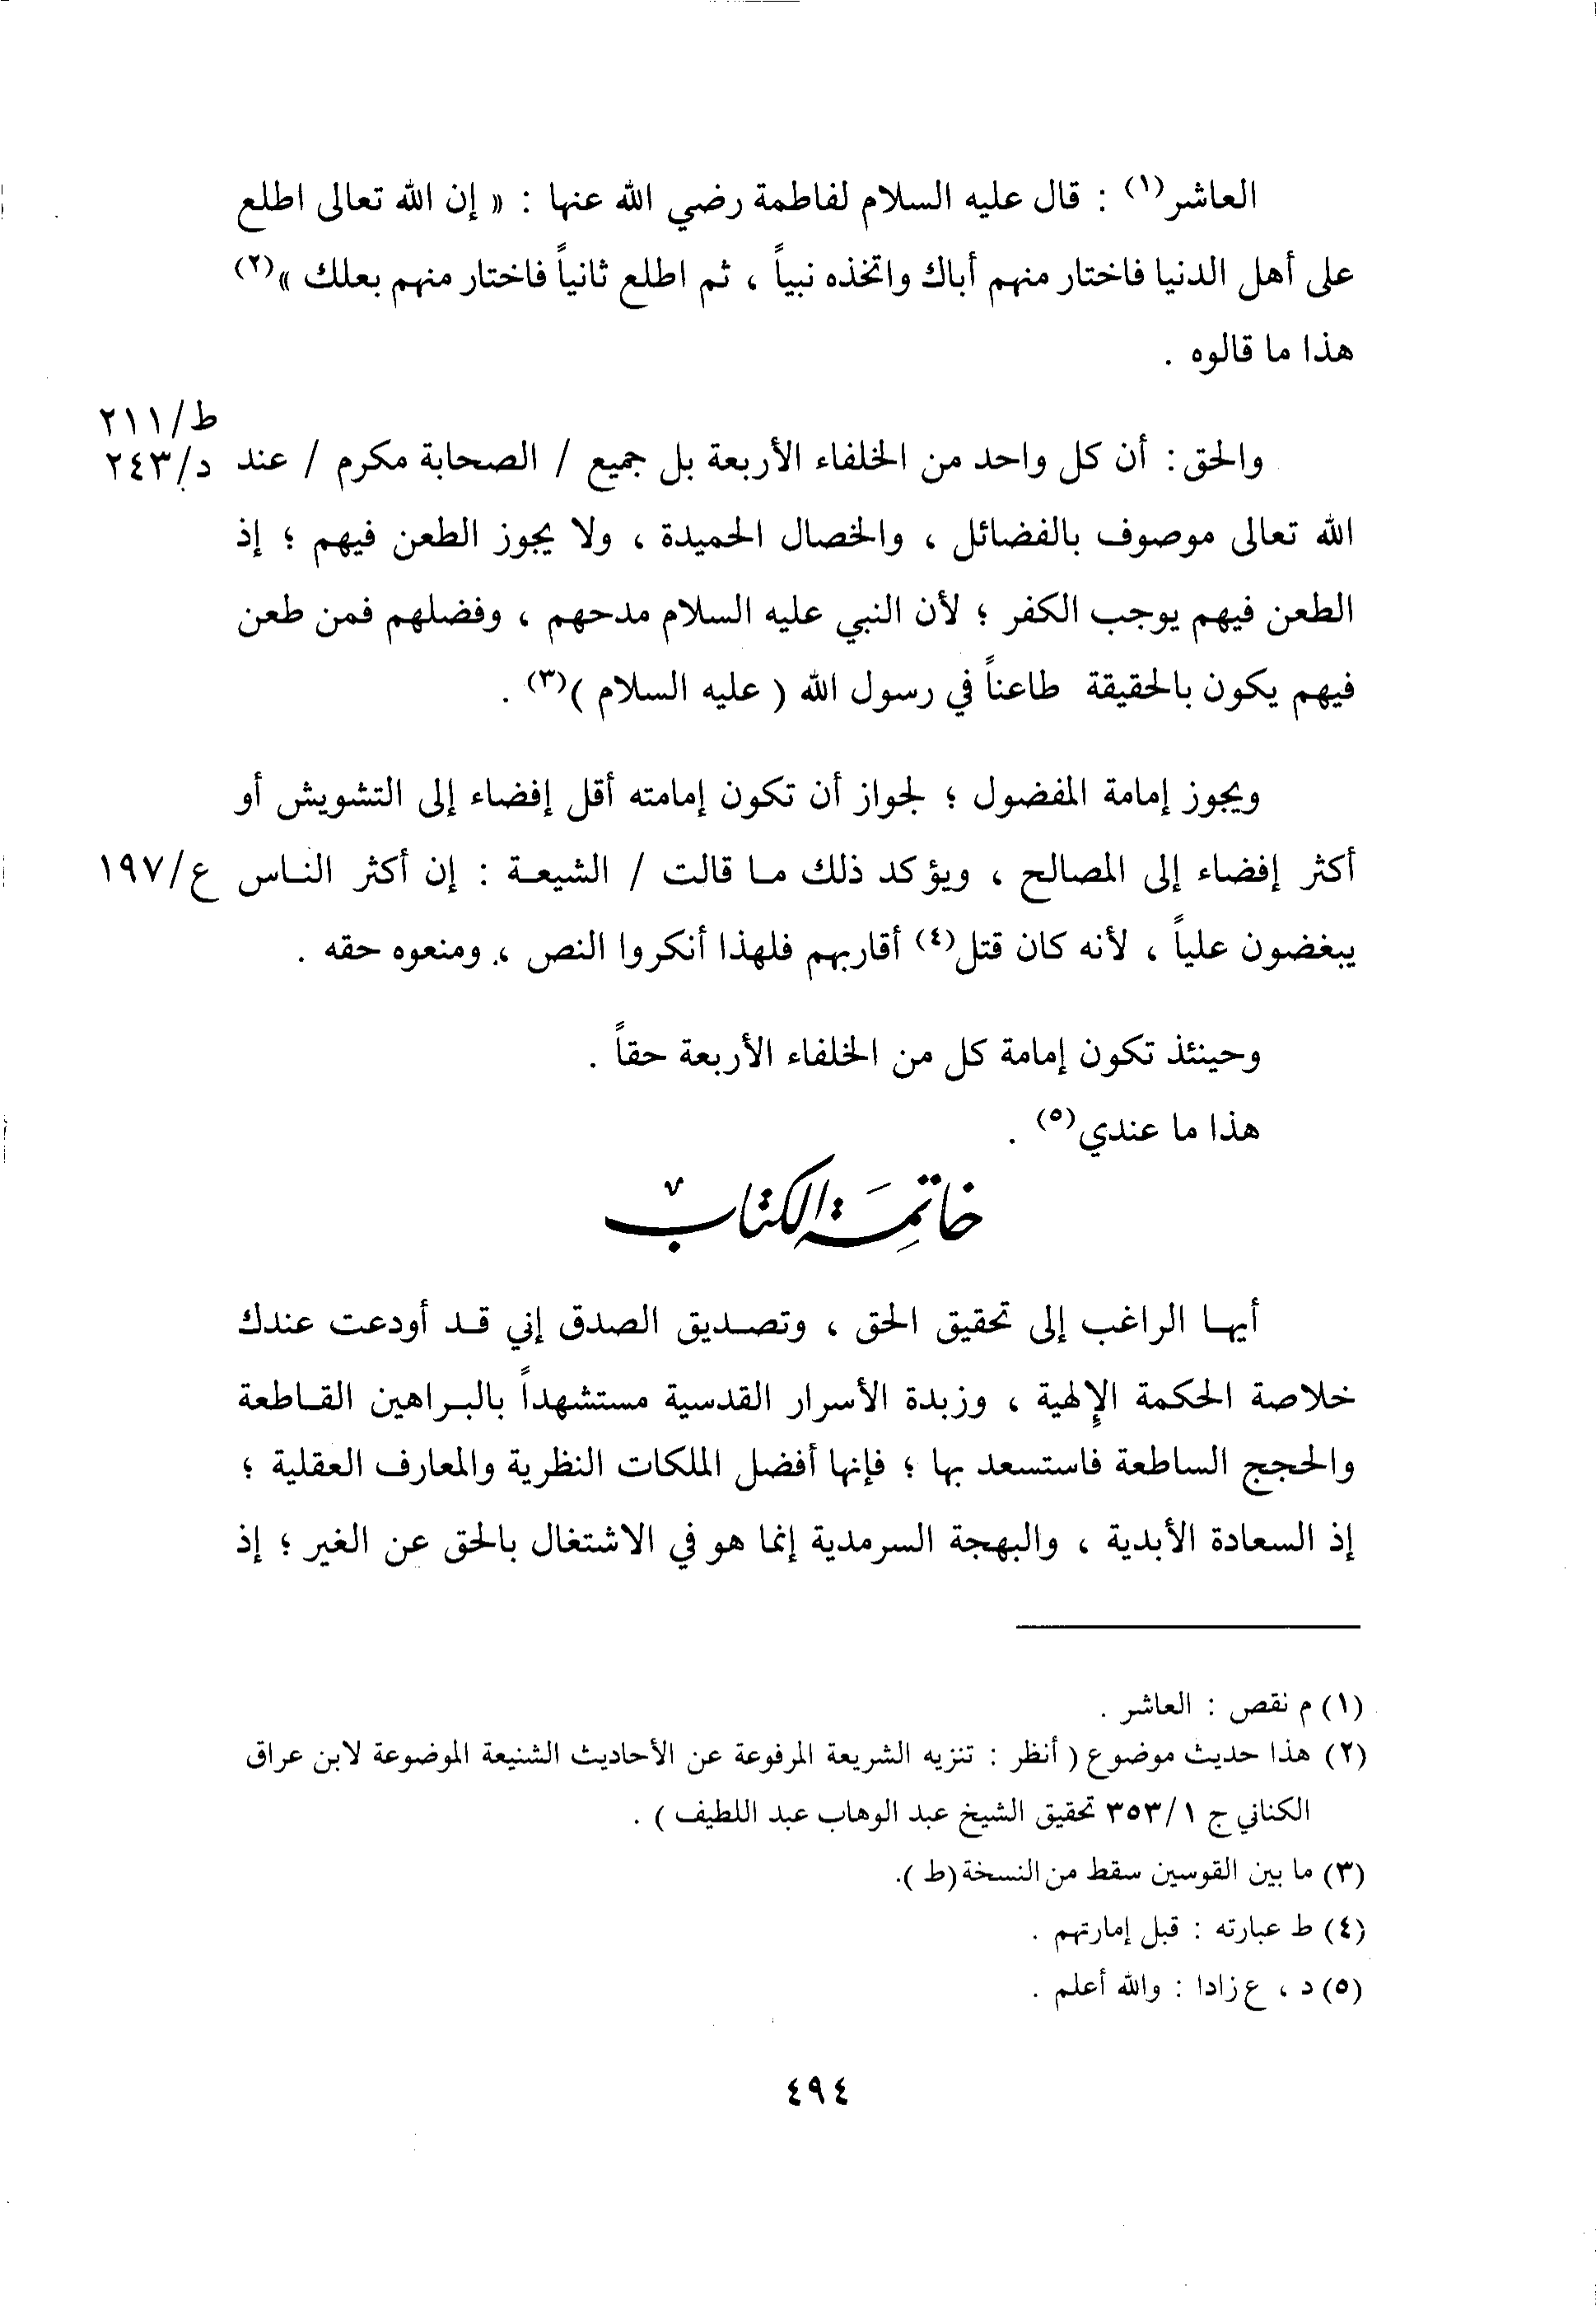 العاشر(١) : قال عليه السلام لفاطمة رضي الله عنها : « إن الله تعالى اطلع
على أهل الدنيا فاختار منهم أباك واتخذه نبياً ، ثم اطلع ثانياً فاختار منهم بعلك »(٢)
هذا ما قالوه .
ط/٢١١
والحق : أن كل واحد من الخلفاء الأربعة بل جميع / الصحابة مكرم / عند د/٢٤٣
الله تعالى موصوف بالفضائل ، والخصال الحميدة ، ولا يجوز الطعن فيهم ؛ إذ
الطعن فيهم يوجب الكفر ؛ لأن النبي عليه السلام مدحهم ، وفضلهم فمن طعن
فيهم يكون بالحقيقة طاعناً في رسول الله ( عليه السلام )(٣) .
ويجوز إمامة المفضول ؛ لجواز أن تكون إمامته أقل إفضاء إلى التشويش أو
أكثر إفضاء إلى المصالح ، ويؤكد ذلك ما قالت / الشيعة : إن أكثر الناس ع/١٩٧
يبغضون علياً ، لأنه كان قتل(٤) أقاربهم فلهذا أنكروا النص ، ومنعوه حقه .
وحينئذ تكون إمامة كل من الخلفاء الأربعة حقاً .
هذا ما عندي(٥) .
خاتمة الكتاب
أيها الراغب إلى تحقيق الحق ، وتصديق الصدق إني قد أودعت عندك
خلاصة الحكمة الإلهية ، وزبدة الأسرار القدسية مستشهداً بالبراهين القاطعة
والحجج الساطعة فاستسعد بها ؛ فإنها أفضل الملكات النظرية والمعارف العقلية ؛
إذ السعادة الأبدية ، والبهجة السرمدية إنما هو في الاشتغال بالحق عن الغير ؛ إذ
(١) م نقص : العاشر .
(٢) هذا حديث موضوع ( أنظر : تنزيه الشريعة المرفوعة عن الأحاديث الشنيعة الموضوعة لابن عراق
الكناني ج ٣٥٣/١ تحقيق الشيخ عبد الوهاب عبد اللطيف ) .
(٣) ما بين القوسين سقط من النسخة (ط ).
(٤) ط عبارته : قبل إمارتهم .
(٥) د ، ع زادا : والله أعلم .
٤٩٤